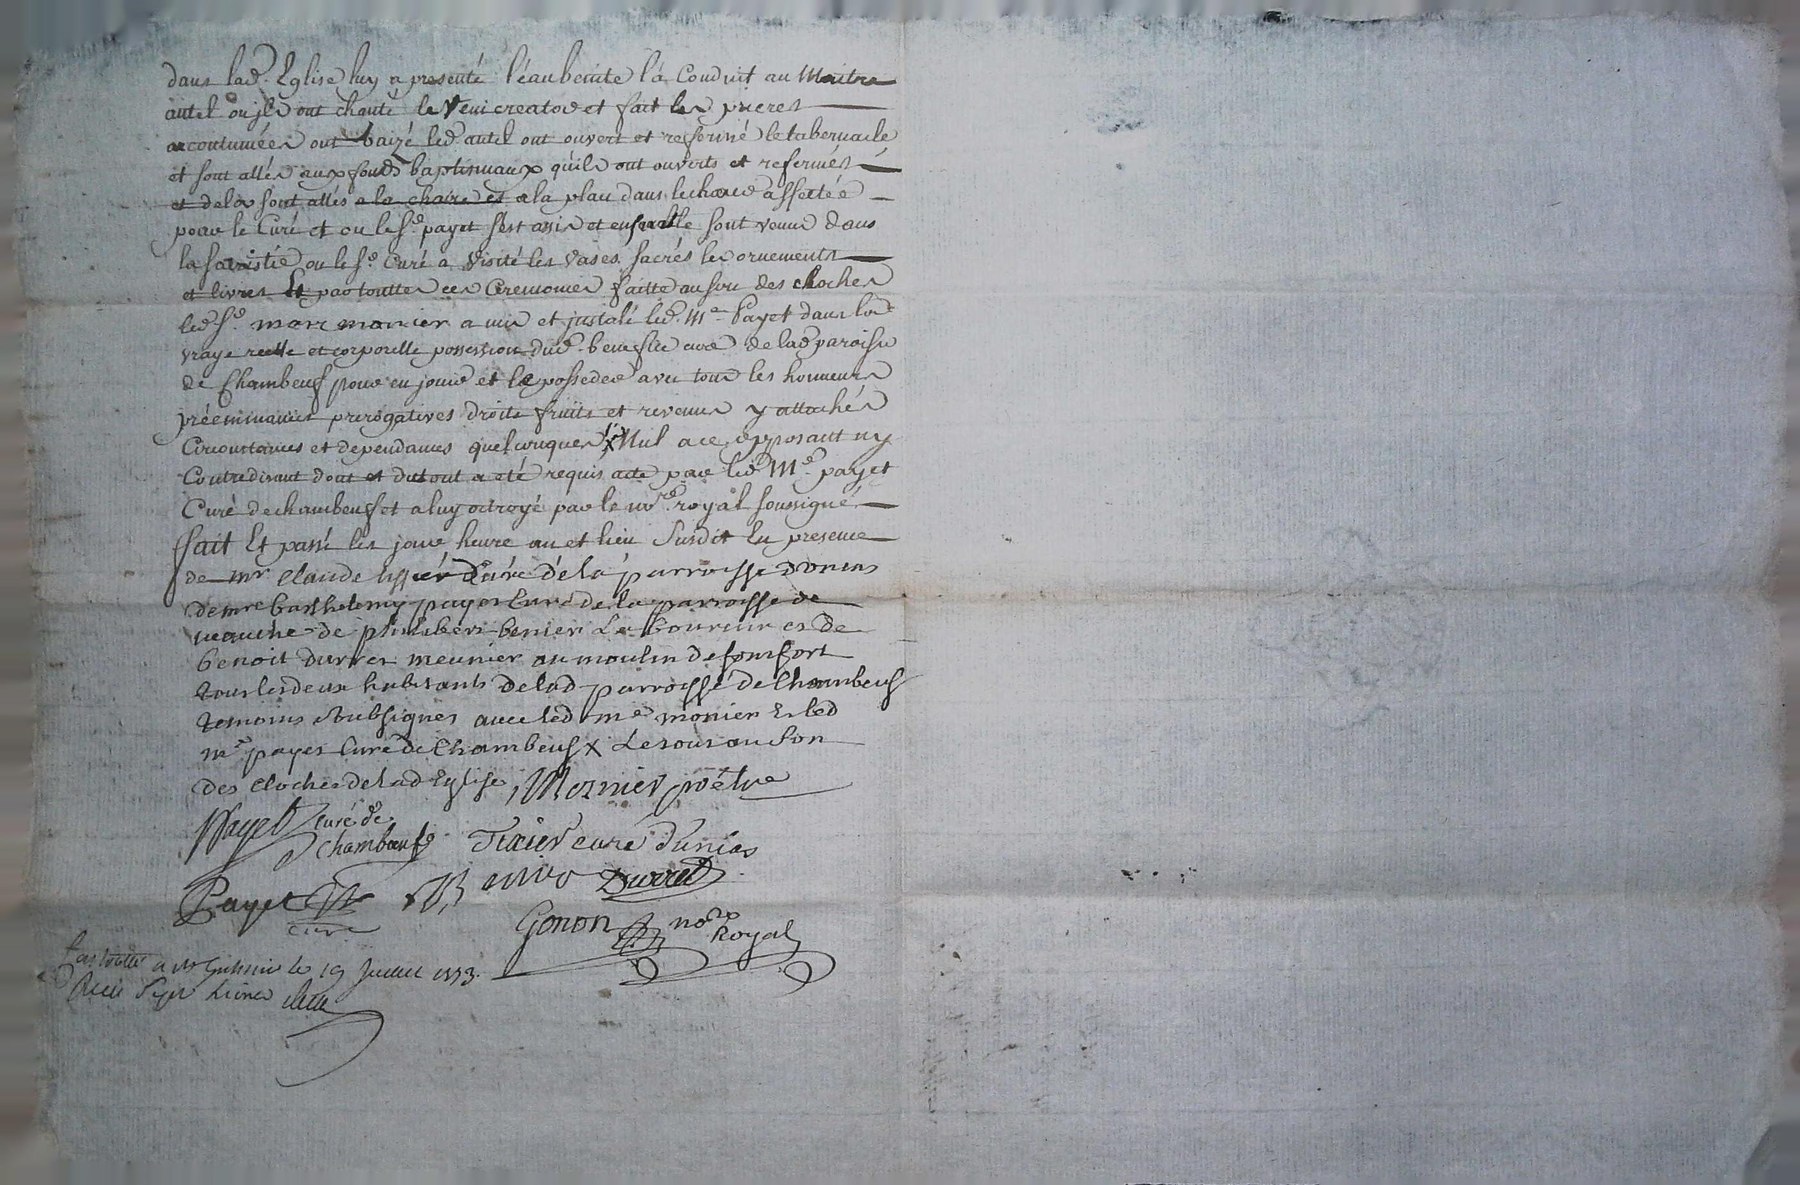 dans lad. Eglise luy a presenté l'éau benite l'a Conduit au Maitre
autel ou jls ont chanté le Veni creator et fait les prieres
accoutumées ont baizé led autel ont ouvert et refermé le tabernacle
et sont allés aux fonds baptismaux qu'ils ont ouverts et refermés
et dela sont allés a la chaire et a la place dans le chœur affectée
pour le Curé et ou le Sr. payet s'est assis et ensuitte sont venus dans
la sacristie ou le Sr. Curé a visité les vases sacrés les ornements
et livres Et par touttes ces Ceremonies faitte au son des cloches
led Sr. marc monier a mis et jnstalé led. Me Payet dans la
vraye reelle et corporelle possession dud. benefice cure de lad paroisse
de Chambeuf pour en jouir et le posseder avec tous les honneurs
prééminances prerogatives droits fruits et revenus y attachés
Circonstances et dependances quelconques X Nul a ce opposant ny
Contredisant dont et du tout a été requis acte par led Me. payet
Curé de chambeuf et a luy octroyé par le nore. royal soussigné
fait Et passé les jour heure an et lieu susdit En presence
de mr Claude tissier Curé de la parroisse d'unias
de mre barthelemy payet Curé de la parroisse de
veauche de philibert benier Laboureur et de
benoit durret meunier au moulin de fontfort
tous les deux habitants de lad parroisse de Chambeuf
temoins soubsignes avec led me monier Et led
me payet Curé de Chambeuf X Le tout au son
des cloches de lad Eglise, Monier prêtre
Payet curé de
chambeuf Tixier curé d'unias
Payet curé Benier Durret
Gonon nore Royal
a St Galmier le 19 Juillet 1773.
Reçu